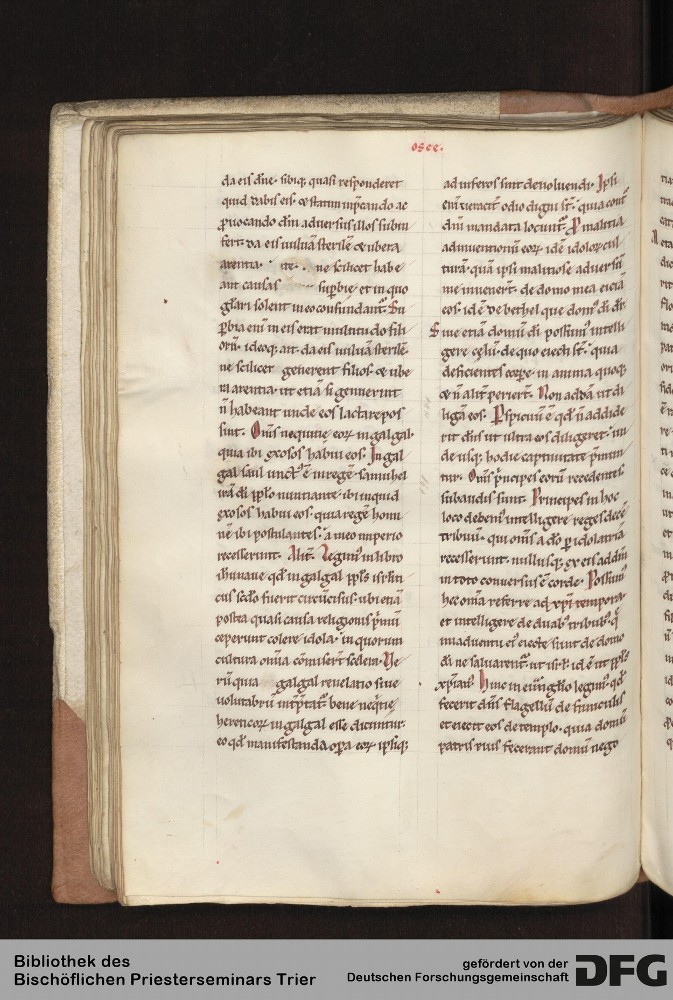 osee.
da eis dn̄e. sibiq; quasi responderet
quid dabis eis. & statim inp̄cando ac
ꝓuocando dm̄ adversus illos subin
fert. da eis uuluā sterilē & ubera
arentia. ne scilicet habe
ant causas superbie. et in quo
gl̄ari solent in eo confundant᷑. Su
ꝑbia enī in eis erat multitudo filio
orū. ideoq; ait. da eis uuluā sterilē.
ne scilicet generent filios. & ube
ra arentia. ut etiā si genuerint
n̄ habeant unde eos lactare pos
sint. Om̄s nequitie eoꝝ in galgal.
quia ibi exosos habui eos. In gal
gal saul unct᷒ ē in regē. samuhel
irā di ipso nuntiante. ibi inquid
exosos habui eos. quia regē homi
nē ibi postulantes. a meo imperio
recesserunt. Alit̄. Legim᷒ in libro
ihūnaue qd̄ in galgal ppl̄s isrl̄iti
cus scd̄o fuerit circūcisus. ubi etiā
postea quasi causa religionis p̄mū
ceperunt colere idola. in quorum
cultura om̄ia cōmiserunt scelera. Ue
rū quia galgal reuelatio siue
uolutabrū int̄p̄tat᷑. bene neq̄tie
hereticoꝝ in galgal esse dicuntur.
eo qd̄ manifestanda oꝑa eoꝝ ipsiq;
ad inferos sint deuoluendi. Ipsi
enī ueraciт odio digni st̄. quia cont̄
dn̄i mandata locunt᷑. P malitia
adinuentionū eoꝝ. idē idoloꝝ cul
turā. quā ipsi malitiose adversū
me inuenert̄. de domo mea eiciā
eos. id ē de bethel que dom᷒ di dr̄.
Siue etiā domū di possum᷒ intelli
gere cęlū. de quo eiecti st̄. quia
deficientes corꝑe. in anima quoq;
& n̄ alit̄ perierт̄. Non addā ut di
ligā eos. Pspicuū ē qd̄ n̄ addide
rit dn̄s ut ultra eos diligeret. un
de usq; hodie captiuitate p̄mun
tur. Om̄s p̄ncipes eorū recedentes.
subaudis sunt. Principes in hoc
loco debem᷒ intelligere reges decē
tribuū. qui om̄s a do ꝑ idolatriā
recesserunt. nullusq; ex eis ad dm̄
in toto conuersus ē corde. Possum᷒
hec om̄a referre ad xp̄i tempora.
et intelligere de duab᷒ tribub᷒. q̄
in aduentu ei᷒ eiecte sunt de domo
di. ne saluarent᷑. ut isrl̄. id ē ut ppl̄s
xp̄ian᷒. Hinc in euḡlio legim᷒. qd̄
fecerit dn̄s flagellū de funiculis
et eiecit eos de templo. quia domū
patris eius fecerant domū nego
Bibliothek des
Bischöflichen Priesterseminars Trier
gefördert von der
Deutschen Forschungsgemeinschaft
DFG